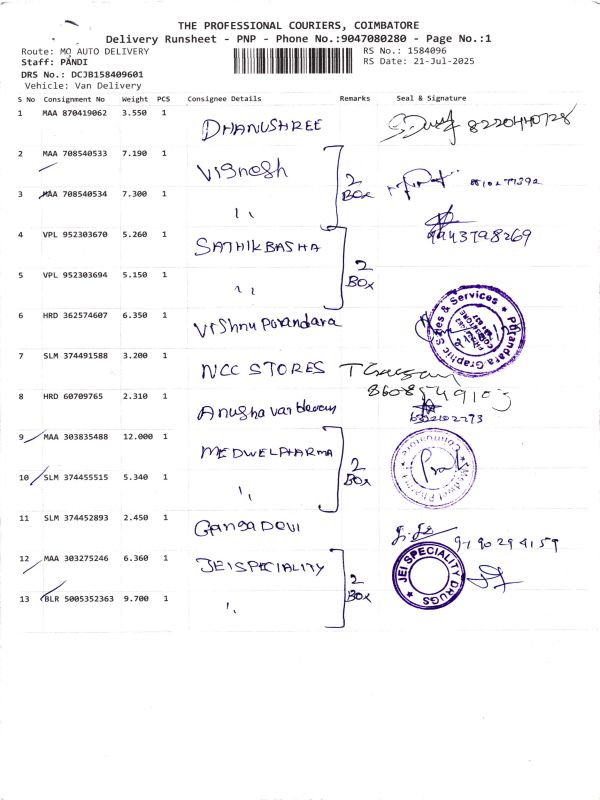 THE PROFESSIONAL COURIERS, COIMBATORE
Delivery Runsheet - PNP - Phone No.:9047080280 - Page No.:1
Route: MQ AUTO DELIVERY RS No.: 1584096
Staff: PANDI RS Date: 21-Jul-2025
DRS No.: DCJB158409601
Vehicle: Van Delivery
S No Consignment No Weight PCS Consignee Details Remarks Seal & Signature
1 MAA 870419062 3.550 1 DHANUSHREE 8220440728
2 MAA 708540533 7.190 1 Vignesh 2 BOX
3 MAA 708540534 7.300 1 ,,
9443798269
4 VPL 952303670 5.260 1 SATHIKBASHA 2 BOX
5 VPL 952303694 5.150 1 ,,
6 HRD 362574607 6.350 1 Vishnu Porandara
Porandara Graphic Sales & Services
7 SLM 374491588 3.200 1 NCC STORES
8 HRD 60709765 2.310 1 Anusha vardevan
9 MAA 303835488 12.000 1 MEDWELPHARMA 2 BOX
Medwel Pharma Coimbatore
10 SLM 374455515 5.340 1 ,,
11 SLM 374452893 2.450 1 Ganga Devi 9190294159
12 MAA 303275246 6.360 1 JEISPECIALITY 2 BOX
JEI SPECIALITY DRUGS
13 BLR 5005352363 9.700 1 ,,